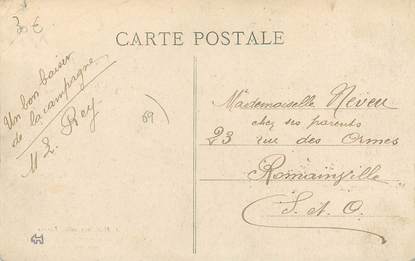 30€
CARTE POSTALE
Un bon baiser
de la campagne
M L. Rey
69
Mademoiselle Neveu
chez ses parents
23 rue des Ormes
Romainville
S. et O.